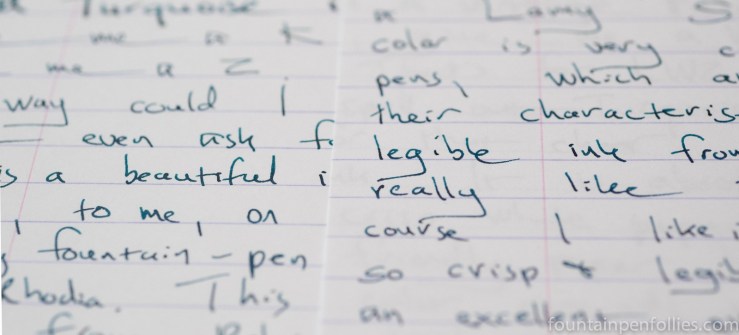 Turquoise
me a K
me a Z
way could I
even ask f
is a beautiful i
, to me, on
fountain-pen
Rhodia. This
a Lamy S
color is very c
pens, which a
their characteris
legible ink from
really like
course I like i
so crisp & legib
an excellent
fountainpenfollies.com